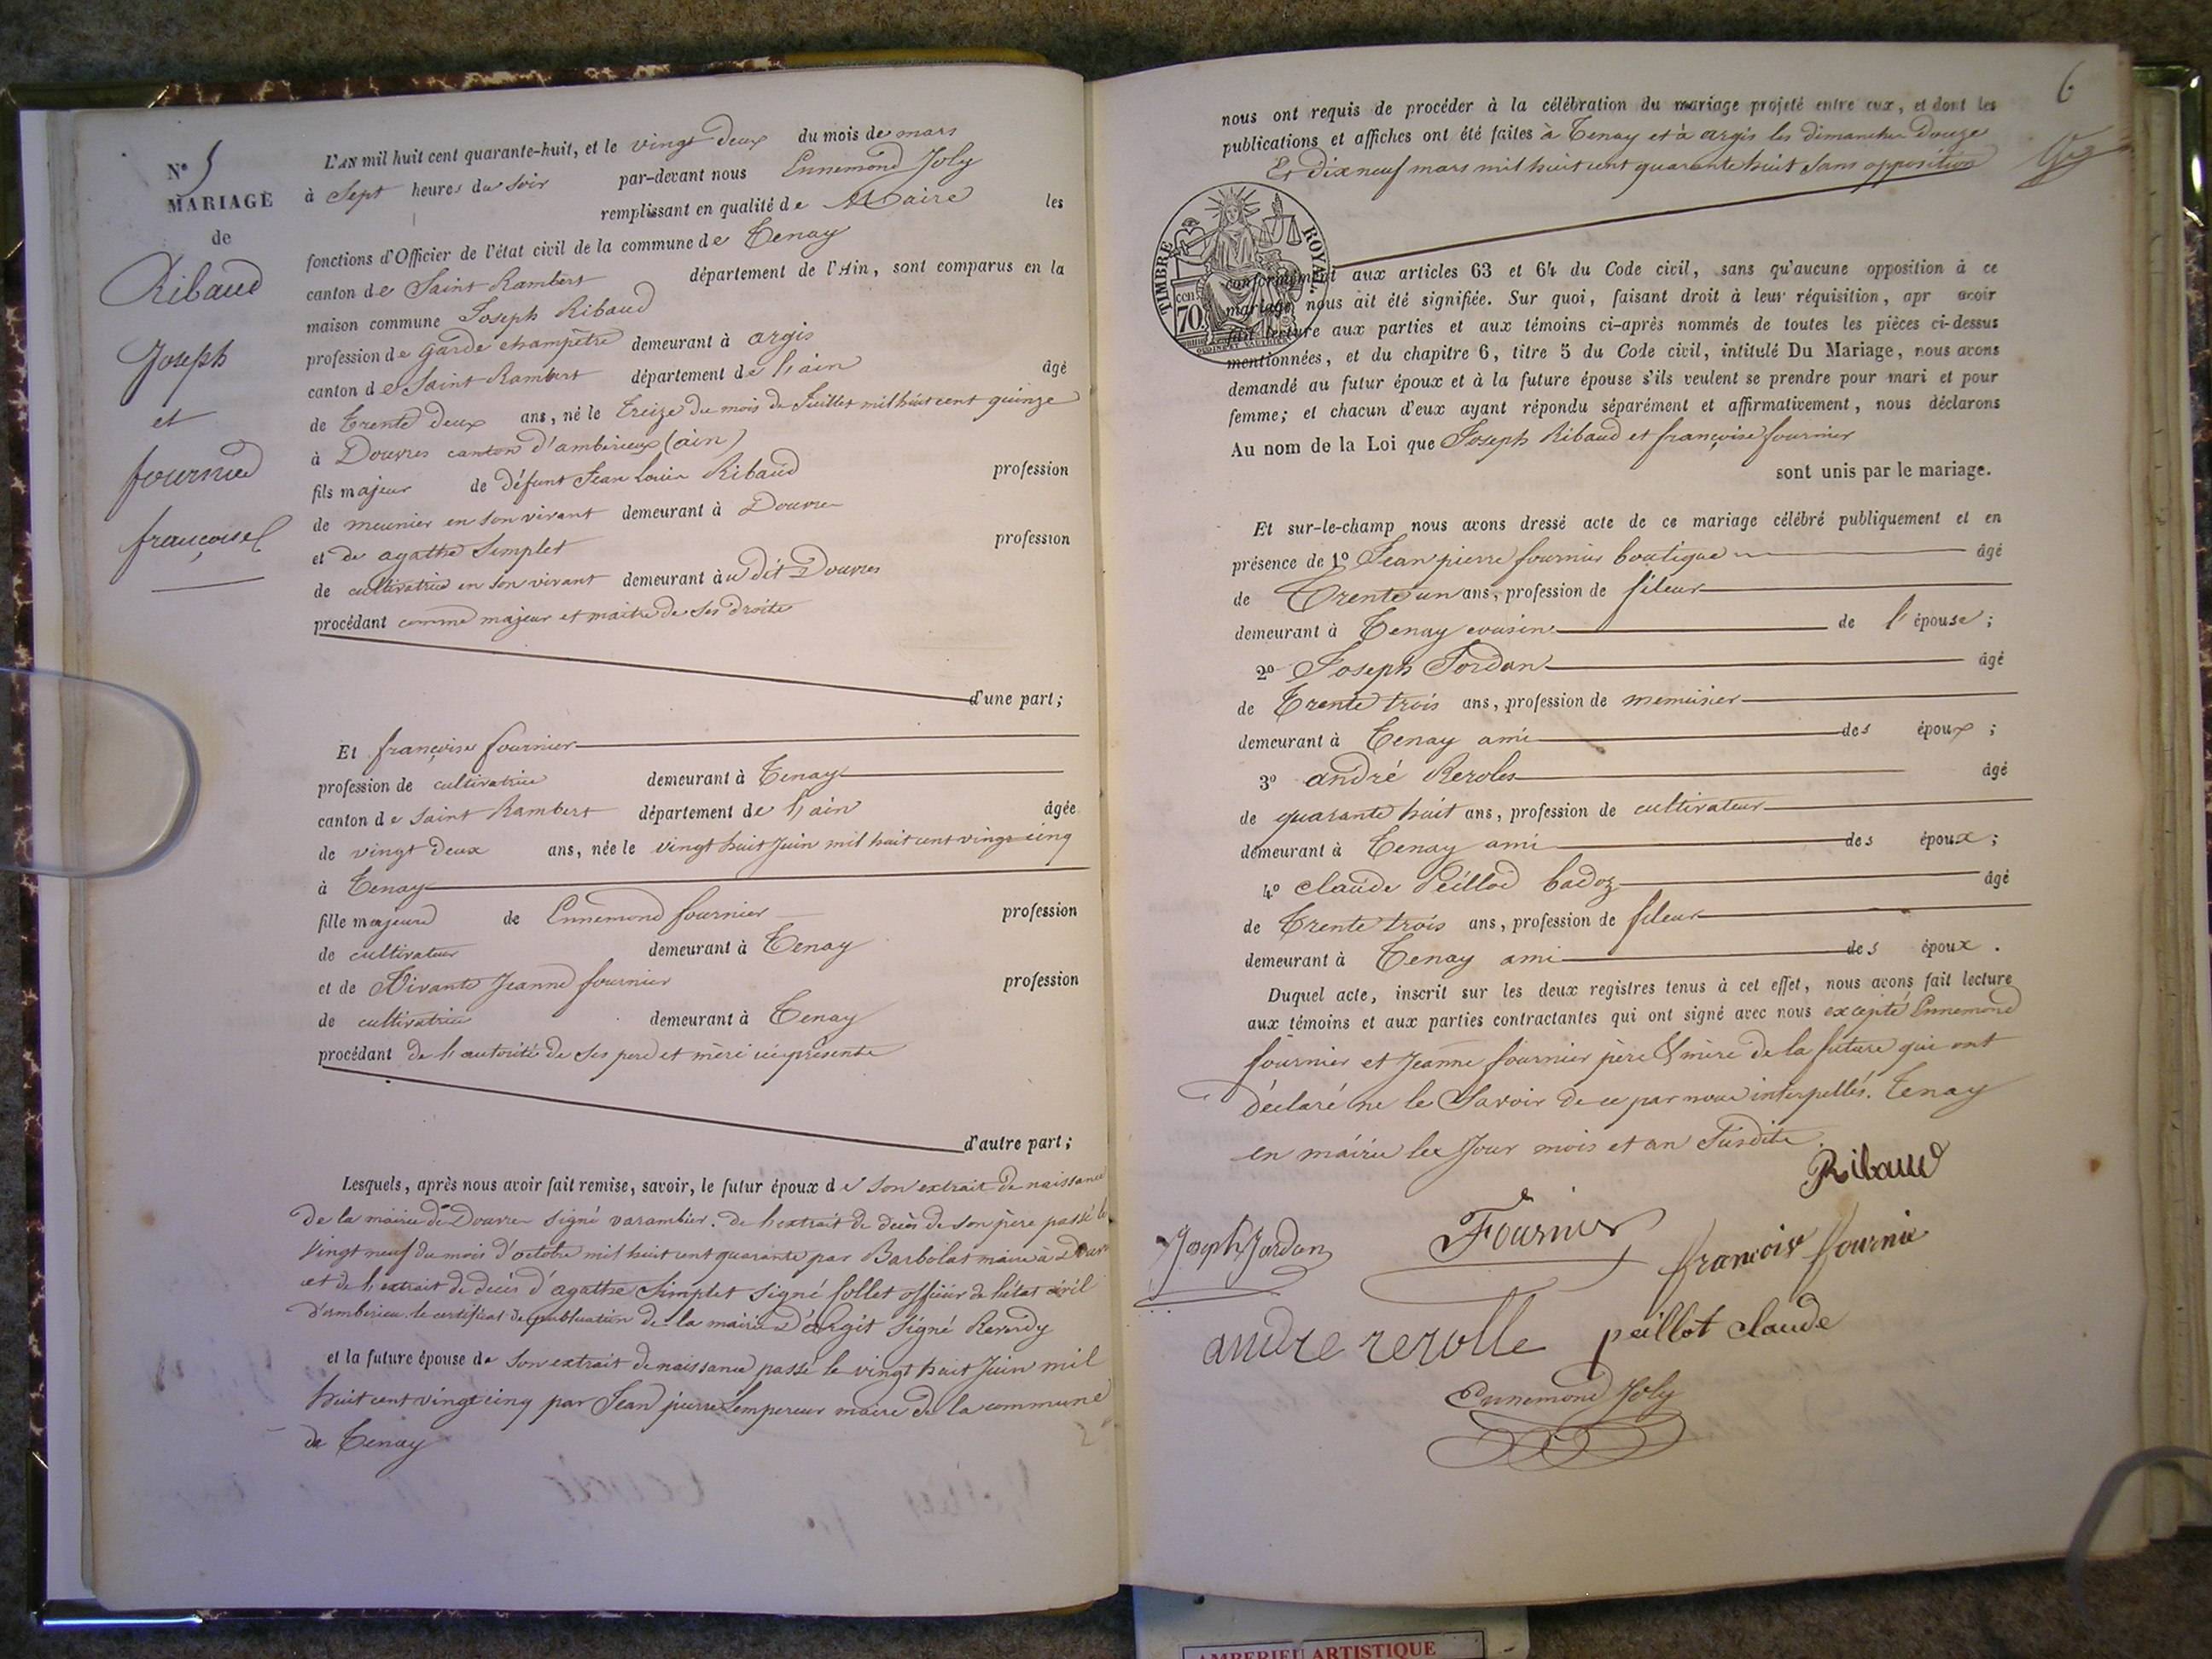 N° 5
MARIAGE
de
Ribaud
Joseph
et
fournier
françoise
L'AN mil huit cent quarante-huit, et le vingt deux du mois de mars
à Sept heures du soir par-devant nous Ennemond Joly
remplissant en qualité de Maire les
fonctions d'Officier de l'état civil de la commune de Tenay
canton de Saint Rambert département de l'Ain, sont comparus en la
maison commune Joseph Ribaud
profession de garde champêtre demeurant à argis
canton de Saint Rambert département de l'ain âgé
de Trente deux ans, né le treize du mois de Juillet mil huit cent quinze
à Douvres canton d'amberieux (ain)
fils majeur de défunt Jean Louis Ribaud profession
de meunier en son vivant demeurant à Douvres
et de agathe Simplet profession
de cultivatrice en son vivant demeurant au dit Douvres
procédant comme majeur et maitre de ses droits
d'une part;
Et françoise fournier
profession de cultivatrice demeurant à Tenay
canton de Saint Rambert département de l'ain âgée
de vingt deux ans, née le vingt huit Juin mil huit cent vingt cinq
à Tenay
fille majeure de Ennemond fournier profession
de cultivateur demeurant à Tenay
et de vivante Jeanne fournier profession
de cultivatrice demeurant à Tenay
procédant de l'autorité de ses pere et mère ici présents
d'autre part;
Lesquels, après nous avoir fait remise, savoir, le futur époux de son extrait de naissance
de la mairie de Douvres signé varambier. de l'extrait de décès de son père passé le
vingt neuf du mois d'octobre mil huit cent quarante par Barbolat maire à Douvres
et de l'extrait de décès d'agathe Simplet signé follet officier de l'état civil
d'amberieu. le certificat de publication de la mairie d'Argit signé Reverdy
et la future épouse de son extrait de naissance passé le vingt huit Juin mil
huit cent vingt cinq par Jean pierre Lempereur maire de la commune
de Tenay
6
nous ont requis de procéder à la célébration du mariage projeté entre eux, et dont les
publications et affiches ont été faites à Tenay et à argis les dimanches douze
Et dix neuf mars mil huit cent quarante huit sans opposition
TIMBRE ROYAL
70 cen.
conformément aux articles 63 et 64 du Code civil, sans qu'aucune opposition à ce
mariage nous ait été signifiée. Sur quoi, faisant droit à leur réquisition, apr avoir
fait lecture aux parties et aux témoins ci-après nommés de toutes les pièces ci-dessus
mentionnées, et du chapitre 6, titre 5 du Code civil, intitulé Du Mariage, nous avons
demandé au futur époux et à la future épouse s'ils veulent se prendre pour mari et pour
femme; et chacun d'eux ayant répondu séparément et affirmativement, nous déclarons
Au nom de la Loi que Joseph Ribaud et françoise fournier
sont unis par le mariage.
Et sur-le-champ nous avons dressé acte de ce mariage célébré publiquement et en
présence de 1° Jean pierre fournier boutique âgé
de Trente un ans, profession de fileur
demeurant à Tenay cousin de l'épouse;
2° Joseph Jordan âgé
de Trente trois ans, profession de menuisier
demeurant à Tenay ami des époux;
3° andré Reroles âgé
de quarante huit ans, profession de cultivateur
demeurant à Tenay ami des époux;
4° claude Peillod badoz âgé
de Trente trois ans, profession de fileur
demeurant à Tenay ami des époux.
Duquel acte, inscrit sur les deux registres tenus à cet effet, nous avons fait lecture
aux témoins et aux parties contractantes qui ont signé avec nous excepté Ennemond
fournier et Jeanne fournier père & mère de la future qui ont
déclaré ne le savoir de ce par nous interpellés. Tenay
en mairie les Jour mois et an Susdits.
Ribaud
Joseph Jordan Fournier francoise fournie
andre rerolle peillot claude
Ennemond Joly
AMBERIEU ARTISTIQUE